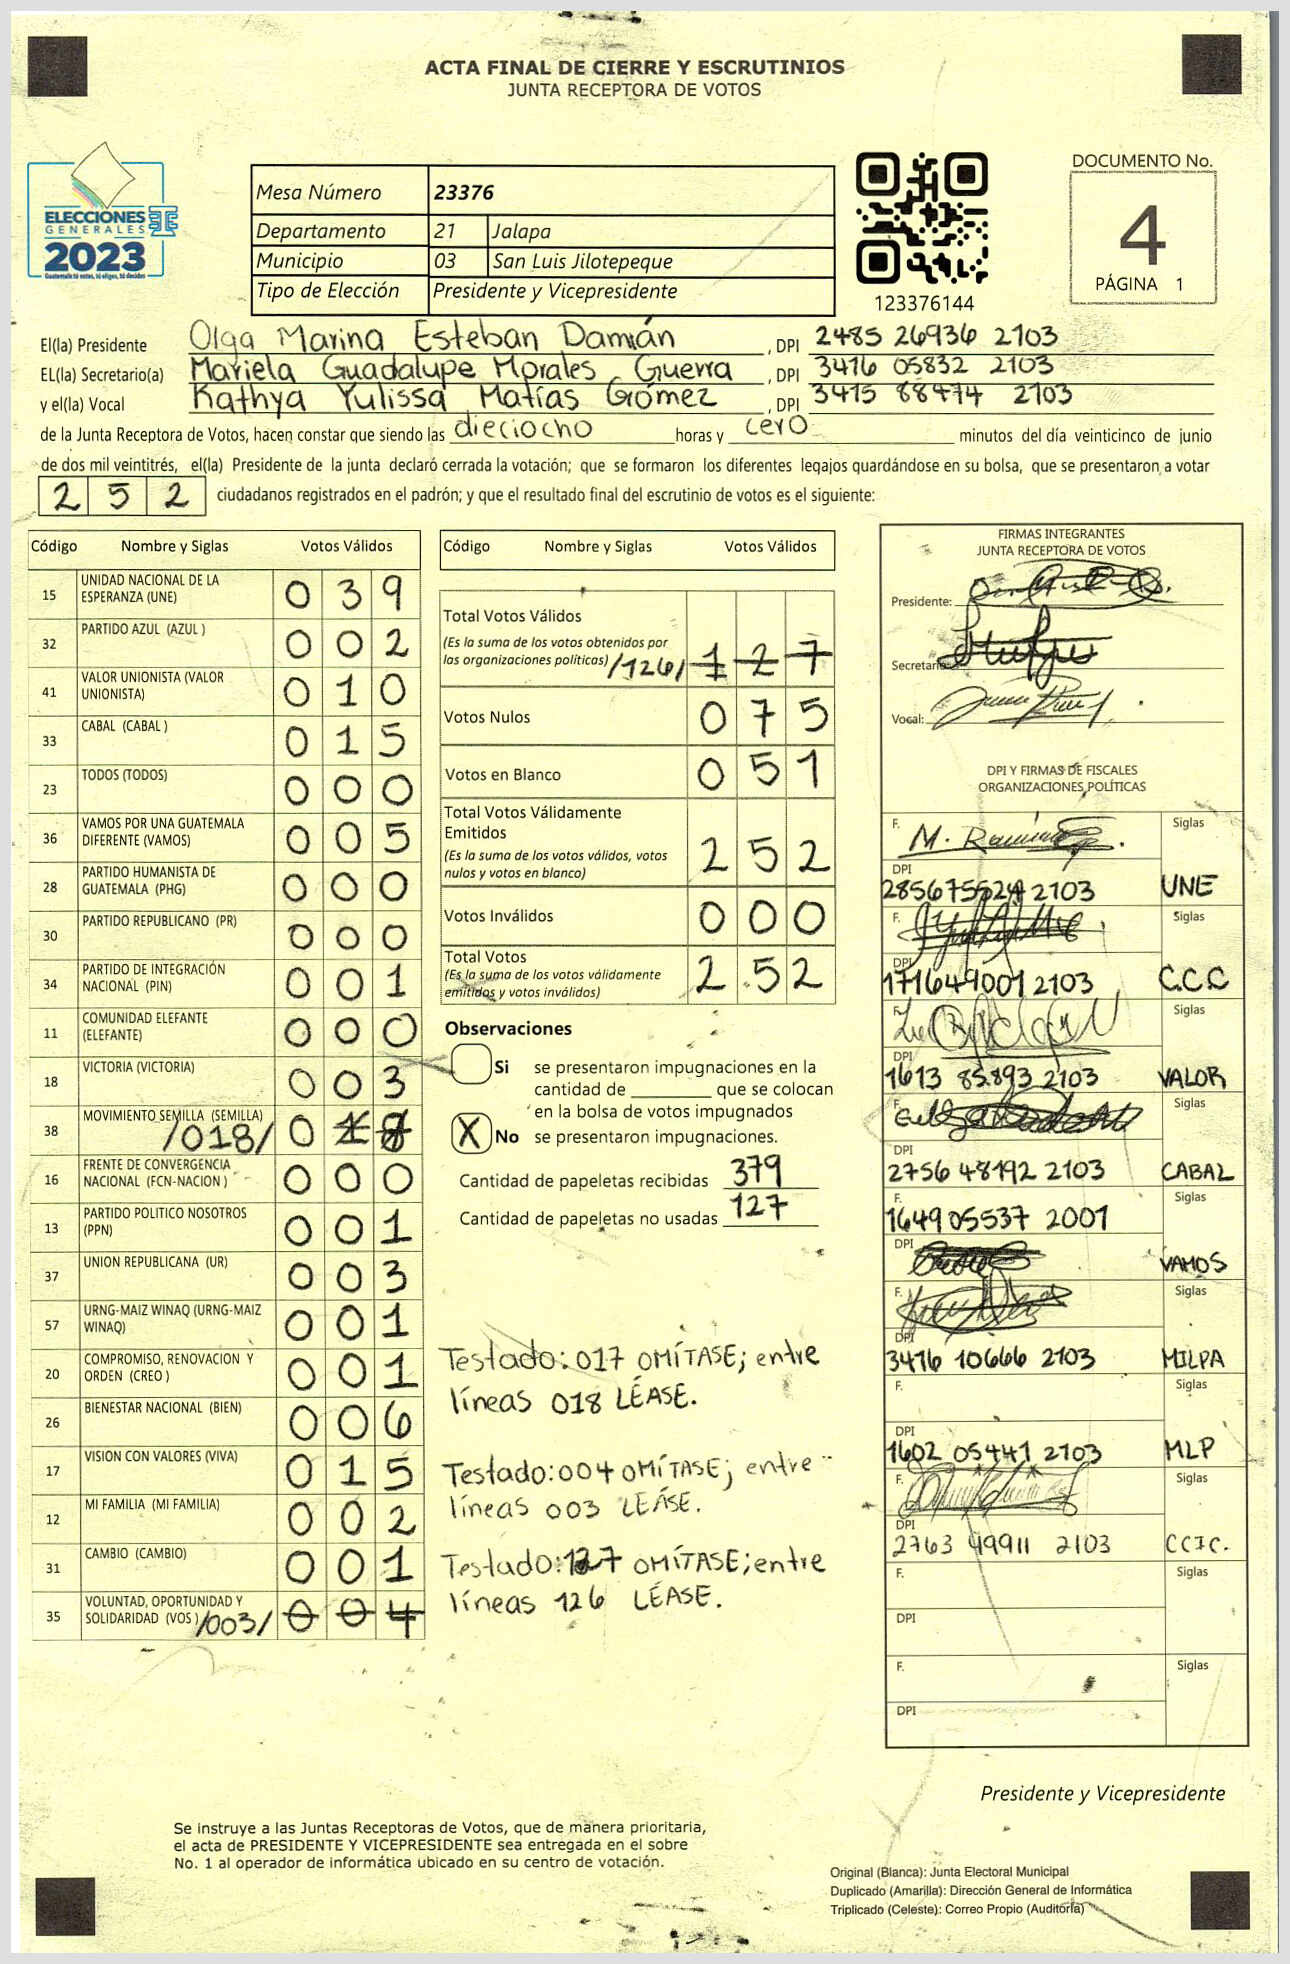 ACTA FINAL DE CIERRE Y ESCRUTINIOS
JUNTA RECEPTORA DE VOTOS
ELECCIONES
GENERALES
2023
Guatemala tú votas, tú eliges, tú decides
Mesa Número 23376
Departamento 21 Jalapa
Municipio 03 San Luis Jilotepeque
Tipo de Elección Presidente y Vicepresidente
123376144
DOCUMENTO No.
4
PÁGINA 1
El(la) Presidente Olga Marina Esteban Damián, DPI 2485 26936 2103
EL(la) Secretario(a) Mariela Guadalupe Morales Guerra, DPI 3416 05832 2103
y el(la) Vocal Kathya Yulissa Matías Gómez, DPI 3415 88474 2103
de la Junta Receptora de Votos, hacen constar que siendo las dieciocho horas y cero minutos del día veinticinco de junio
de dos mil veintitrés, el(la) Presidente de la junta declaró cerrada la votación; que se formaron los diferentes legajos quardándose en su bolsa, que se presentaron a votar
252 ciudadanos registrados en el padrón; y que el resultado final del escrutinio de votos es el siguiente:
Código Nombre y Siglas Votos Válidos
15 UNIDAD NACIONAL DE LA ESPERANZA (UNE) 0 3 9
32 PARTIDO AZUL (AZUL ) 0 0 2
41 VALOR UNIONISTA (VALOR UNIONISTA) 0 1 0
33 CABAL (CABAL ) 0 1 5
23 TODOS (TODOS) 0 0 0
36 VAMOS POR UNA GUATEMALA DIFERENTE (VAMOS) 0 0 5
28 PARTIDO HUMANISTA DE GUATEMALA (PHG) 0 0 0
30 PARTIDO REPUBLICANO (PR) 0 0 0
34 PARTIDO DE INTEGRACIÓN NACIONAL (PIN) 0 0 1
11 COMUNIDAD ELEFANTE (ELEFANTE) 0 0 0
18 VICTORIA (VICTORIA) 0 0 3
38 MOVIMIENTO SEMILLA (SEMILLA) /018/ 0
16 FRENTE DE CONVERGENCIA NACIONAL (FCN-NACION ) 0 0 0
13 PARTIDO POLITICO NOSOTROS (PPN) 0 0 1
37 UNION REPUBLICANA (UR) 0 0 3
57 URNG-MAIZ WINAQ (URNG-MAIZ WINAQ) 0 0 1
20 COMPROMISO, RENOVACION Y ORDEN (CREO ) 0 0 1
26 BIENESTAR NACIONAL (BIEN) 0 0 6
17 VISION CON VALORES (VIVA) 0 1 5
12 MI FAMILIA (MI FAMILIA) 0 0 2
31 CAMBIO (CAMBIO) 0 0 1
35 VOLUNTAD, OPORTUNIDAD Y SOLIDARIDAD (VOS ) /003/ 0 0 4
Código Nombre y Siglas Votos Válidos
Total Votos Válidos
(Es la suma de los votos obtenidos por
las organizaciones políticas) /126/ 1 2 7
Votos Nulos 0 7 5
Votos en Blanco 0 5 1
Total Votos Válidamente
Emitidos
(Es la suma de los votos válidos, votos
nulos y votos en blanco) 2 5 2
Votos Inválidos 0 0 0
Total Votos
(Es la suma de los votos válidamente
emitidos y votos inválidos) 2 5 2
Observaciones
Si se presentaron impugnaciones en la
cantidad de ________ que se colocan
en la bolsa de votos impugnados
X No se presentaron impugnaciones.
Cantidad de papeletas recibidas 379
Cantidad de papeletas no usadas 127
Testado: 017 OMÍTASE; entre
líneas 018 LÉASE.
Testado: 004 OMÍTASE; entre
líneas 003 LEÁSE.
Testado: 127 OMÍTASE; entre
líneas 126 LÉASE.
FIRMAS INTEGRANTES
JUNTA RECEPTORA DE VOTOS
Presidente:
Secretario:
Vocal:
DPI Y FIRMAS DE FISCALES
ORGANIZACIONES POLÍTICAS
F. Siglas
DPI 2103 UNE
F. Siglas
DPI 171649001 2103 C.C.C
F. Siglas
DPI 1613 85893 2103 VALOR
F. Siglas
DPI 2756 48192 2103 CABAL
F. Siglas
1649 05537 2001
DPI VAMOS
F. Siglas
DPI 3416 10666 2103 MILPA
F. Siglas
DPI 1602 05441 2103 MLP
F. Siglas
DPI 2763 49911 2103 CCIC.
F. Siglas
DPI
F. Siglas
DPI
Presidente y Vicepresidente
Se instruye a las Juntas Receptoras de Votos, que de manera prioritaria,
el acta de PRESIDENTE Y VICEPRESIDENTE sea entregada en el sobre
No. 1 al operador de informática ubicado en su centro de votación.
Original (Blanca): Junta Electoral Municipal
Duplicado (Amarilla): Dirección General de Informática
Triplicado (Celeste): Correo Propio (Auditoría)